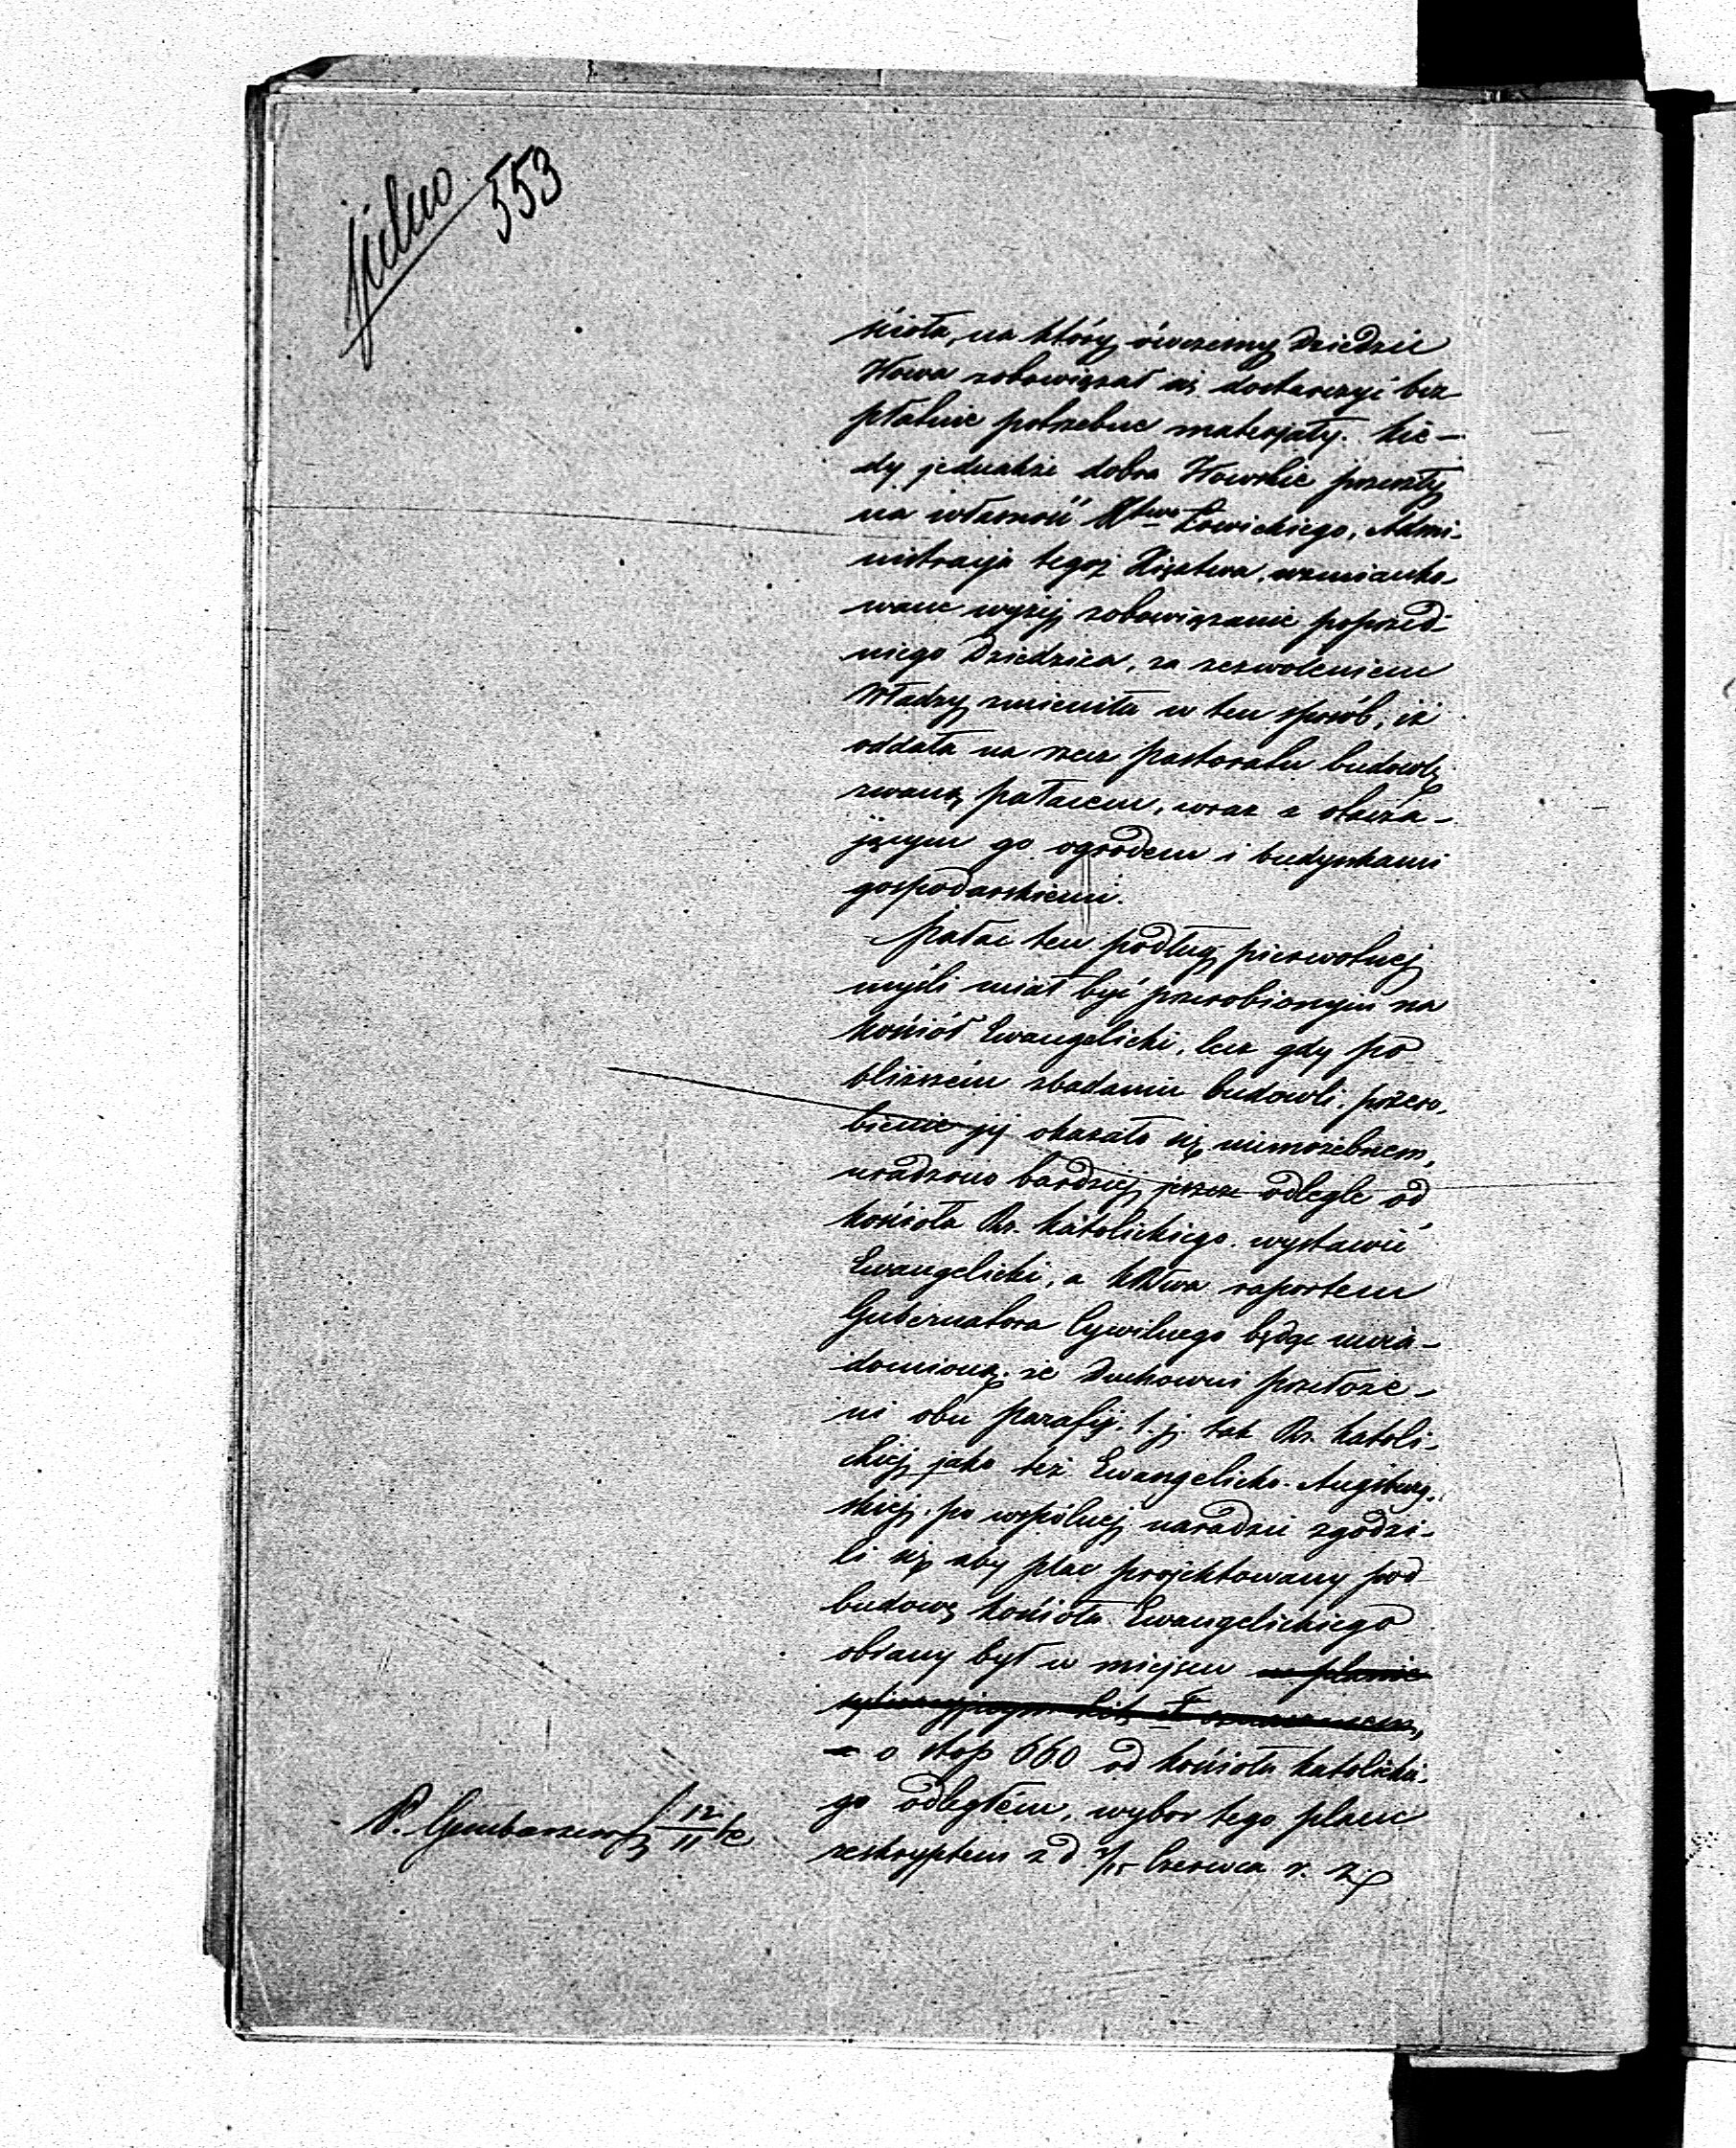 pilno
553
ścioła, na który ówczesny Dziedzic
Iłowa zobowiązał się dostarczyć bez
płatnie potrzebne materjały. Kie-
dy jednakże dobra Iłowskie przeszły
na własność Xtwa Łowickiego, Admi-
nistracja tegoż Xięztwa, wzmianko-
wane wyżej zobowiązanie poprzed-
niego Dziedzica, za zezwoleniem
Władzy zmieniła w ten sposób, iż
oddała na rzecz pastoratu budowlę
zwaną pałacem, wraz z otacza-
jącym go ogrodem i budynkami
gospodarskiemi.
Pałac ten podług pierwotnej
myśli miał być przerobionym na
kościół Ewangelicki, lecz gdy po
bliższém zbadaniu budowli, przero-
bienie jej okazało się niemożebnem,
uradzono bardziej jeszcze odlegle od
kościoła Rz. Katolickiego wystawić
Ewangelicki, a raportem
Gubernatora Cywilnego będąc uwia-
domioną, że Duchowni przełoże-
ni obu Parafij, t. j. tak Rz. Katoli-
ckiej jako też Ewangelicko-Augsburg-
skiej, po wspólnej naradzie zgodzi-
li się, aby plac projektowany pod
budowę kościoła Ewangelickiego
obrany był w miejscu w planie
sytuacyjnym lit. oznaczonem,
o stóp 660 od kościoła katolickie-
go odległém, wybór tego placu
reskryptem z d. 3/15 Czerwca r. z.
P. 12/11